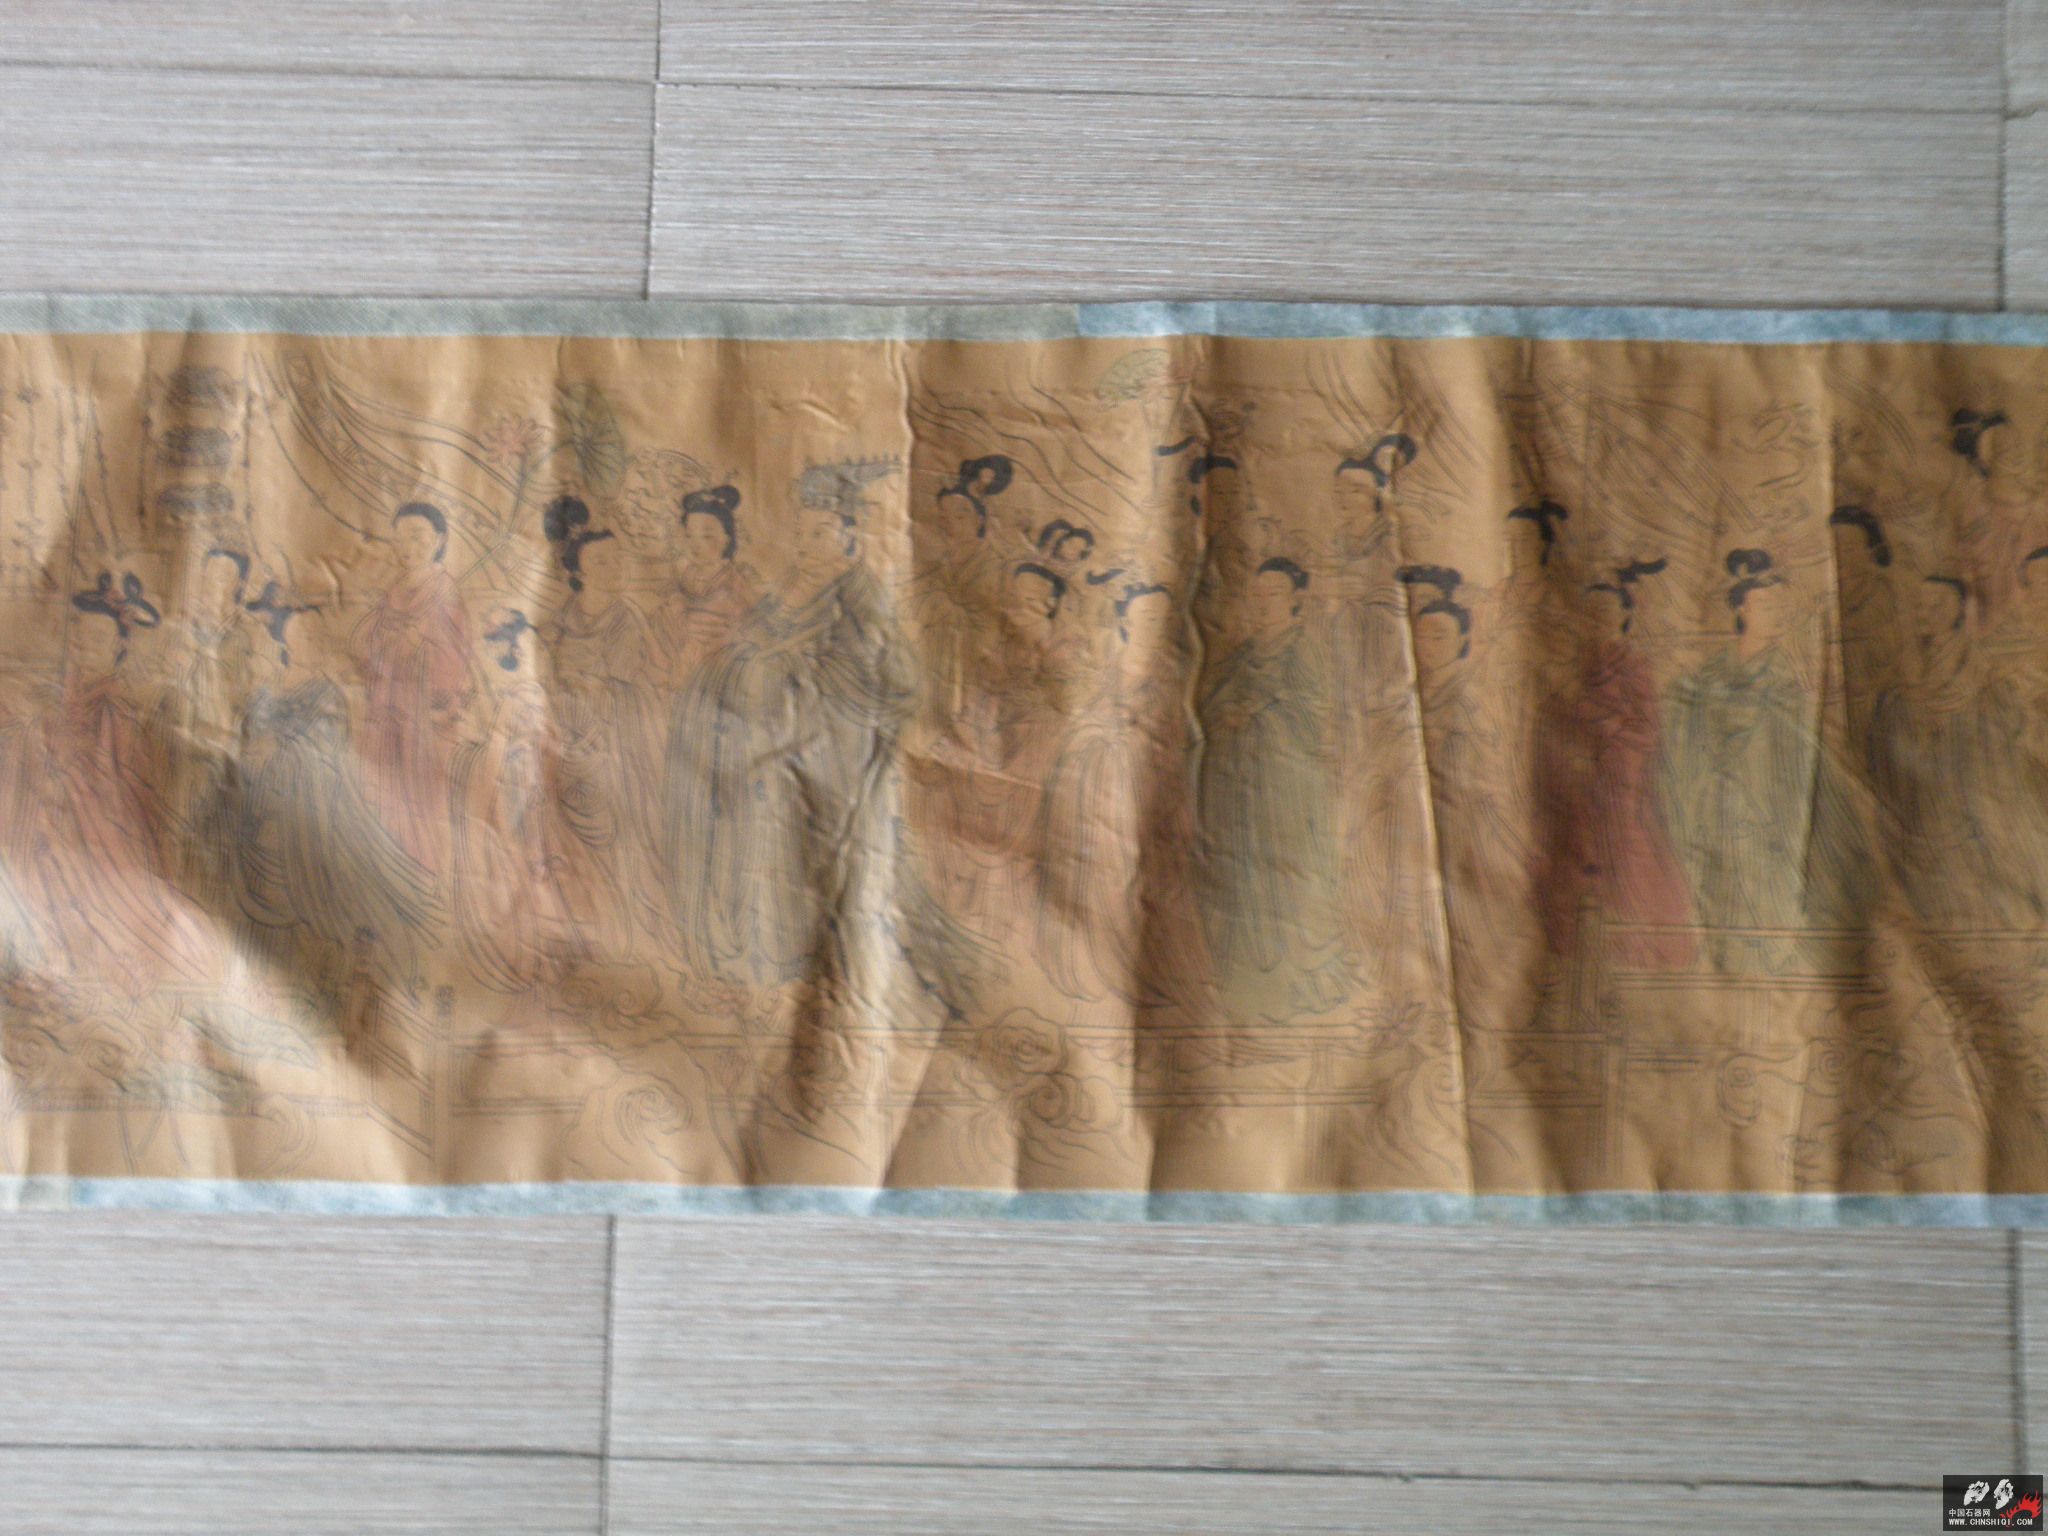 中国石器网
WWW.CHNSHIQI.COM